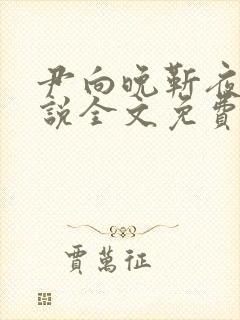 尹向晚靳夜
說全文免費
賈萬征